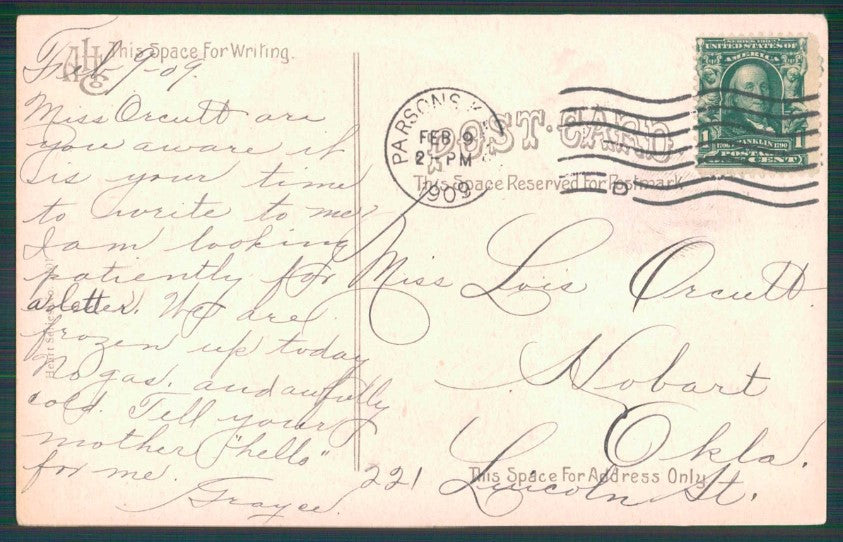 This Space For Writing.
Feb 9-09.
Miss Orcutt are
you aware it
is your time
to write to me?
I am looking
patiently for
a letter. We are
frozen up today
No gas, and awfully
cold. Tell your
mother "hello"
for me.
Grayce.
PARSONS, K
FEB 9
2 - PM
1909
POST-CARD
This Space Reserved For Postmark
D
UNITED STATES OF
AMERICA
1 1
FRANKLIN 1790
POSTAGE
ONE CENT
Miss Lois Orcutt.
Hobart
Okla.
This Space For Address Only
221 Lincoln St.
Heart Se